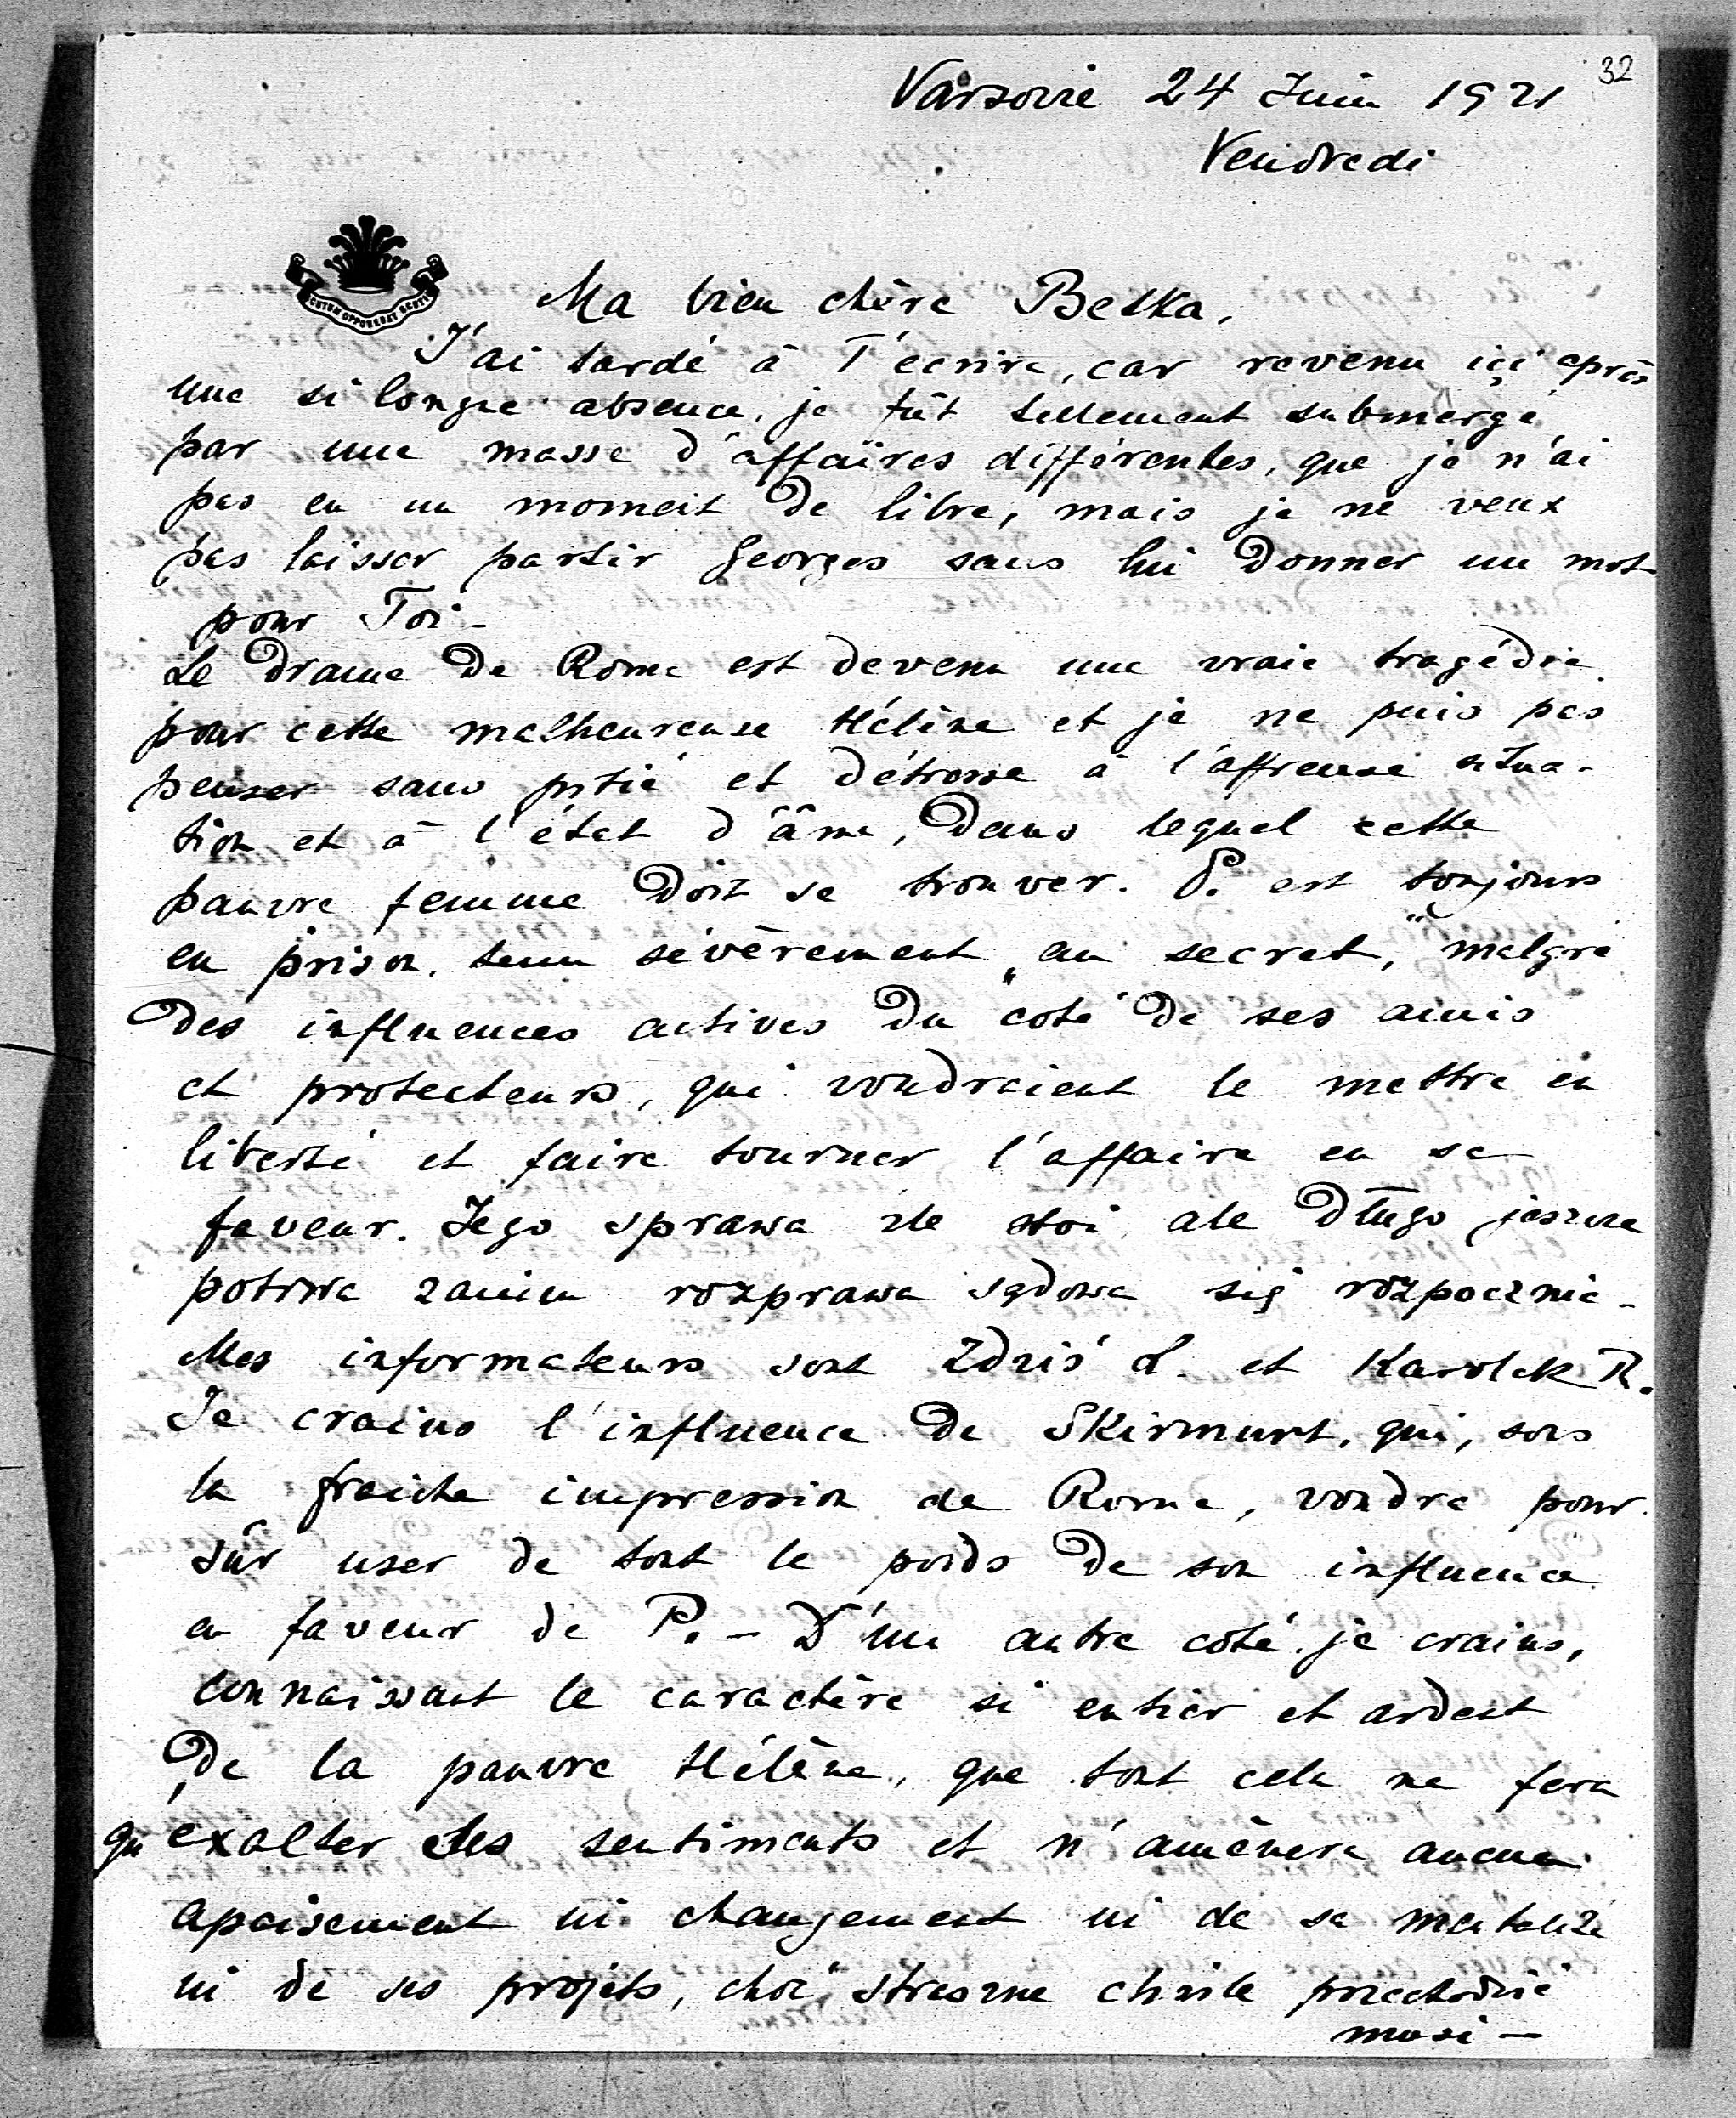 32
Varsovie 24 Juin 1921
Vendredi
SCUTUM OPPONEBAT SCUTIS
Ma bien chère Betka,
J'ai tardé à T'écrire, car revenu içi après
une si longue absence, je fût tellement submergé
par une masse d'affaires différentes, que je n'ai
pas eu un moment de libre, mais je ne veux
pas laisser partir Georges sans lui donner un mot
pour Toi –
Le drame de Rome est devenu une vraie tragédie
pour cette malheureuse Hélène et je ne puis pas
penser sans pitié et détresse à l'affreuse situa-
tion et à l'état d'âme, dans lequel cette
pauvre femme doit se trouver. P. est toujours
en prison, tenu sévèrement „au secret," malgré
des influences actives du coté de ses amis
et protecteurs, qui voudraient le mettre en
liberté et faire tourner l'affaire en sa
faveur. Jego sprawa źle stoi, ale długo jeszcze
potrwa zanim rozprawa sądowa się rozpocznie –
Mes informateurs sont Zdziś L. et Karolek R.
Je crains l'influence de Skirmunt, qui, sous
la fraiche impression de Rome, voudra pour
sûr user de tout le poids de son influence
en faveur de P. – D'un autre coté je crains,
connaissant le caractère si entier et ardent
de la pauvre Hélène, que tout cela ne fera
qu'exalter ses sentiments et n'amènera aucun
apaisement ni changement ni de sa mentalité
ni de ses projets, choć straszne chwile przechodzić
musi –